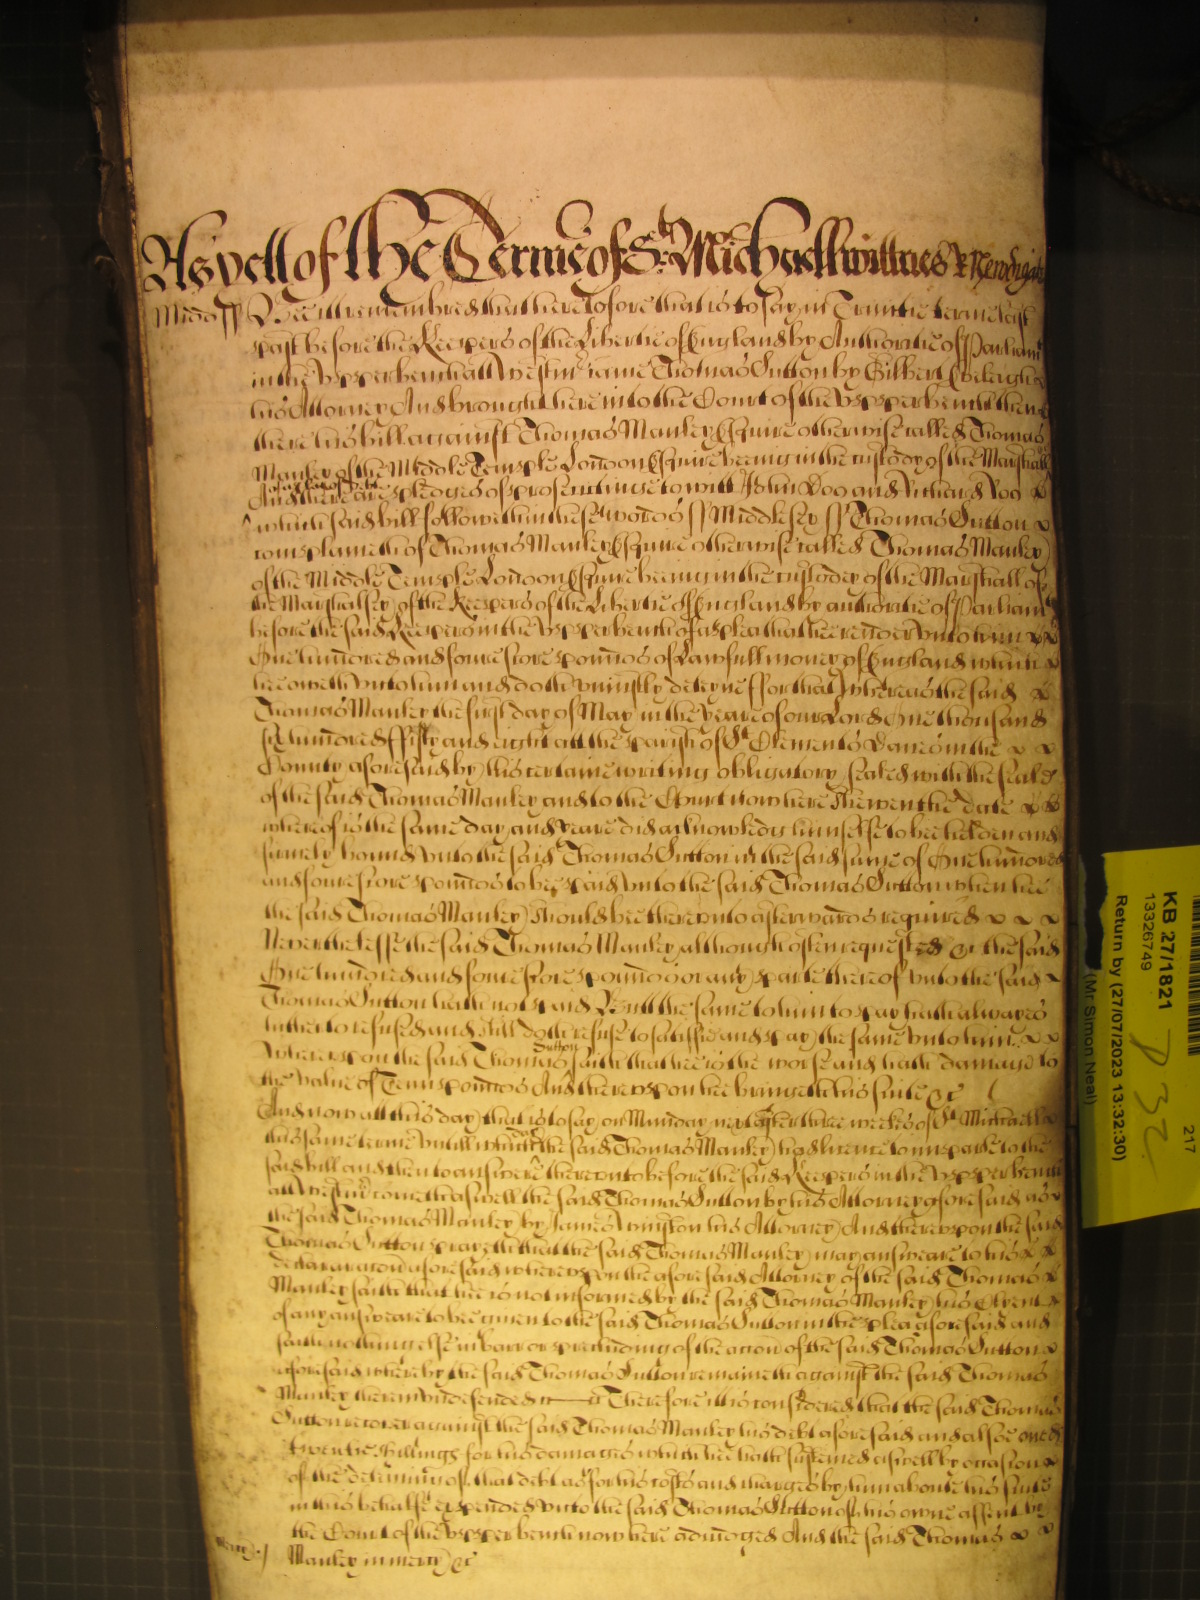 As yett of the Terme of St. Michaell wittnes
Midd ss Bee it remembred that heretofore that is to say in Trinitie terme last
past before the Keepers of the Libertie of England by Authoritie of Parliamt
in the Upper bench att Westmr came Thomas Sutton by Gilbert
his Attorney And brought here into the Court of the Upper bench then
there his bill against Thomas Manley Esquire otherwise called Thomas
Manley of the Middle Temple London Esquire being in the custody of the Marshall
of a plea of debt
And there are pledges of prosecution to witt John Doo and Richard Roo
which said bill followeth in these words ss Middlesex ss Thomas Sutton
complaineth of Thomas Manley Esquire otherwise called Thomas Manley
of the Middle Temple London Esquire being in the custody of the Marshall of
the Marshalsey of the Keepers of the Libertie of England by authoritie of Parliamt
before the said Keepers in the Upper bench of a plea that hee render unto him
One hundred and foure score pounds of Lawfull money of England which
hee oweth unto him and doth uniustly deteyne ffor that Whereas the said
Thomas Manley the first day of May in the yeare of our Lord One thousand
six hundred ffifty and eight att the parish of St Clements Danes in the
County aforesaid by his certaine writing obligatory sealed with the seale
of the said Thomas Manley and to the Court now here shewen the date
whereof is the same day and yeare did acknowledg himselfe to bee holden and
firmely bound unto the said Thomas Sutton in the said sume of One hundred
and foure score pounds to bee paid unto the said Thomas Sutton when hee
the said Thomas Manley should bee thereunto afterwards required
Neverthelesse the said Thomas Manley although often requested &c the said
One hundred and foure score pounds or any parte thereof unto the said
Thomas Sutton hath not paid But the same to him to pay hath alwayes
hitherto refused and still doth refuse to satisfie and pay the same unto him
Whereupon the said Thomas Sutton saith that hee is the worse and hath damage to
the value of Tenn pounds And thereupon hee bringeth his suite &c
And now att this day that is to say on Munday next after three weekes of St Michaell
this same terme untill which day the said Thomas Manley had licence to imparle to the
said bill and then to answere thereunto before the said Keepers in the Upper bench
att Westmr cometh aswell the said Thomas Sutton by his Attorney aforesaid as
the said Thomas Manley by James Winston his Attorney And thereupon the said
Thomas Sutton prayeth that the said Thomas Manley may answeare to his
declaracon aforesaid whereupon the aforesaid Attorney of the said Thomas
Manley saith that hee is not informed by the said Thomas Manley his Clyent
of any answeare to bee given to the said Thomas Sutton in the plea aforesaid and
saith nothing else in barr or precluding of the accon of the said Thomas Sutton
aforesaid whereby the said Thomas Sutton remaineth against the said Thomas
Manley therein undefended &c Therefore it is considered that the said Thomas
Sutton recover against the said Thomas Manley his debt aforesaid and alsoe one &
twentie shillings for his damages which hee hath susteined aswell by occasion
of the deteining of that debt as for his costs and charges by him about his suite
in this behalfe expended unto the said Thomas Sutton of his owne assent by
the Court of the Upper bench now here adiudged And the said Thomas
Mercy Manley in mercy &c
KB 27/1821
13326749
Return by (27/07/2023 13:32:30)
(Mr Simon Neal)
217